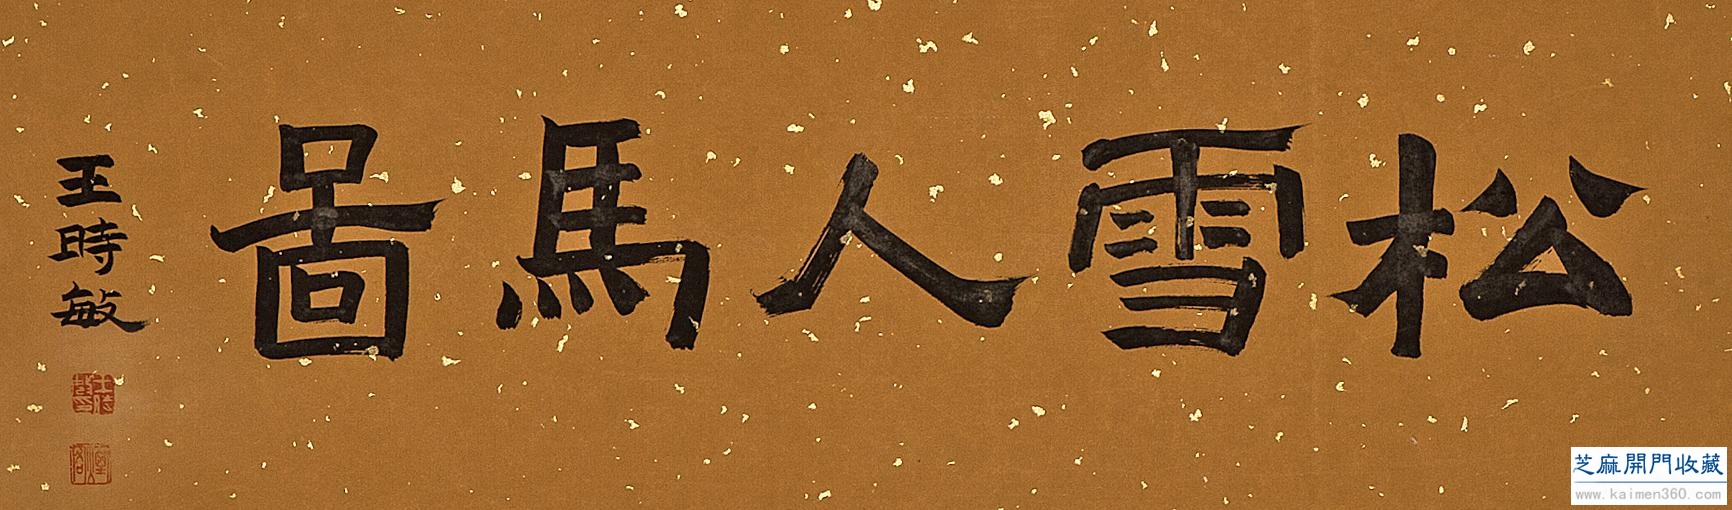 松雪人馬啚
王時敏
王時敏印
煙客
芝麻開門收藏
www.kaimen360.com